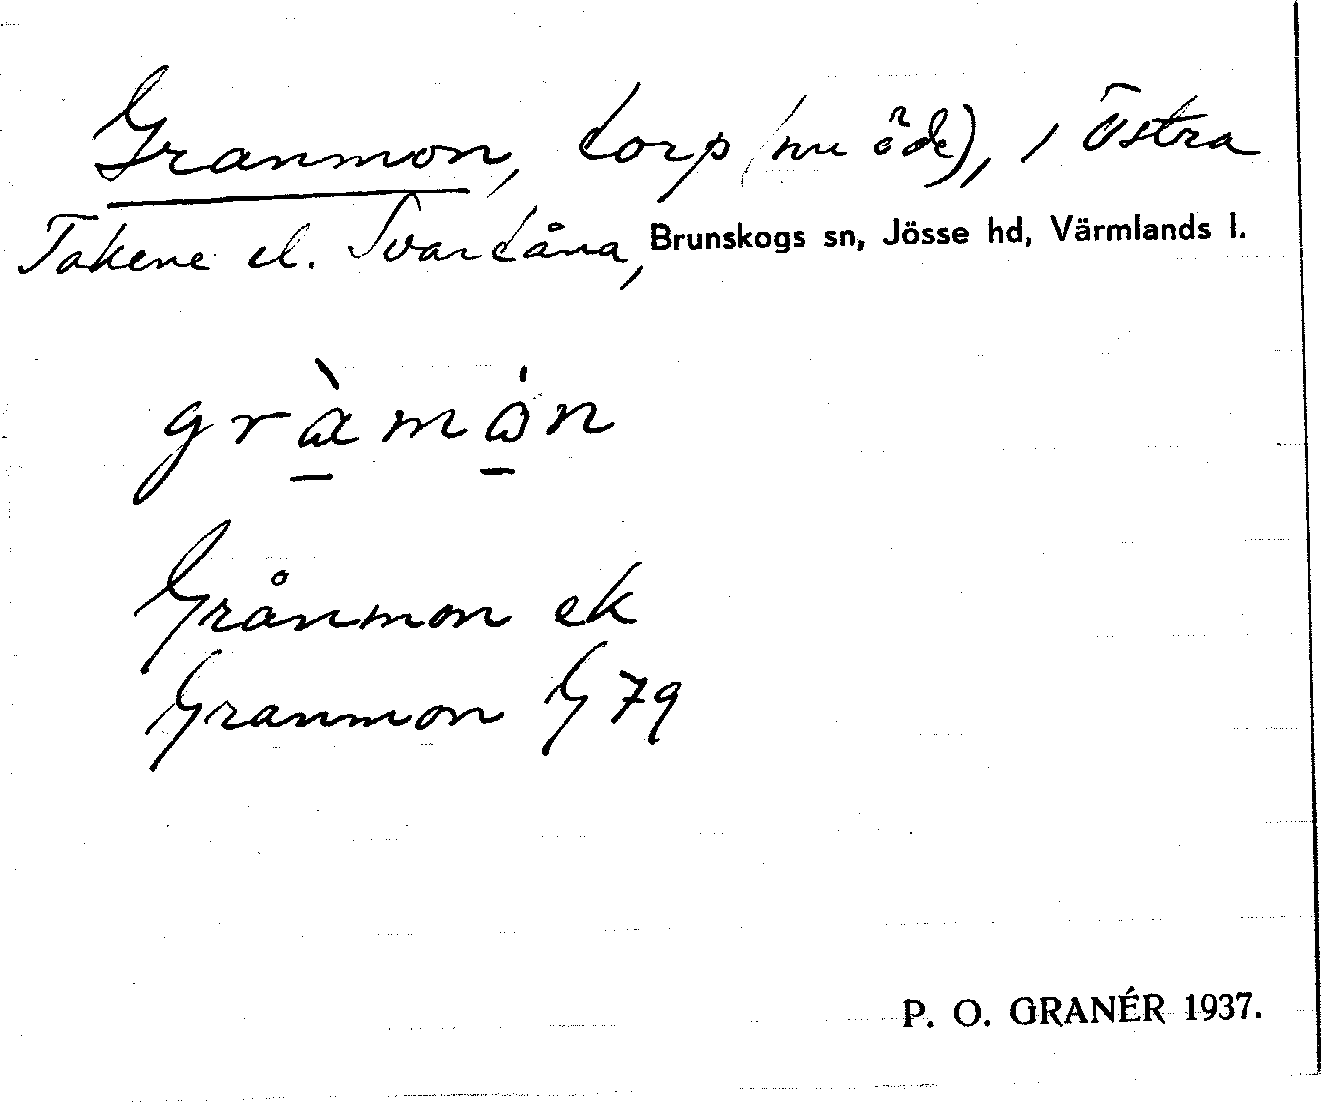 Granmon, torp (nu öde), i Östra
Takene el. Svartåna, Brunskogs sn, Jösse hd, Värmlands l.
gràmȯn
Grånmon ek
Granmon G 79
P. O. GRANÉR 1937.